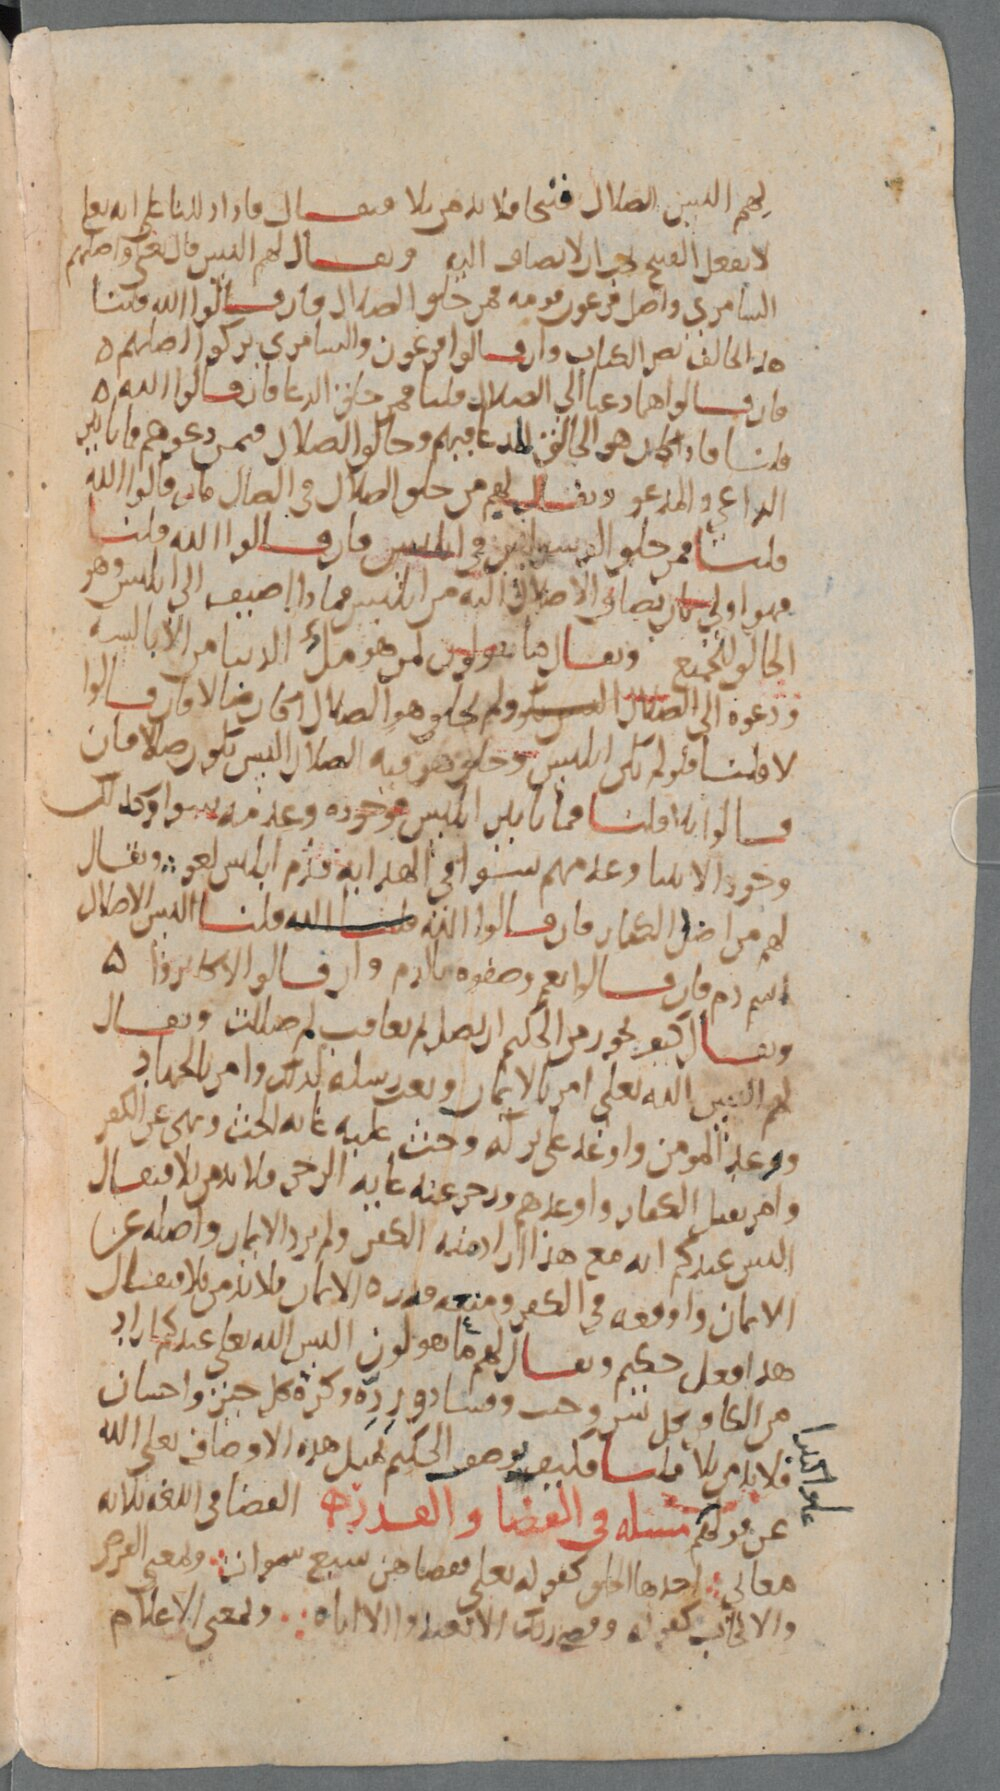 لهم اليس الضلال قبيحا فلا بد من بلا فيقال فاذا دللنا على انه تعلى
لا يفعل القبيح وجب ان لا يضاف اليه ويقال لهم اليس قال تعلى واضلهم
السامري واضل فرعون قومه فمن خلق الضلال فان قالوا الله قلنا
هذا يخالف نص الكتاب وان قالوا فرعون والسامري تركوا اصلهم ه
فان قالوا هما دعيا الى الضلال قلنا فمن خلق الدعا فان قالوا الله ه
قلنا فاذا كان هو الخالق للدعا فيهم وخالق الضلال فيمن دعوهم فما تاثير
الداعي والمدعو ويقال لهم من خلق الضلال في الضال فان قالوا الله
قلنا فمن خلق الوسواس في ابليس فان قالوا الله قلنا
فهو اولى بان يضاف الاضلال اليه من ابليس فماذا اضيف الى ابليس وهو
الخالق للجميع ويقال ما تقولون لو هو ملئ الدنيا من الابالسة
ودعوه الى الضلال ولم يخلق هو الضلال اكان ضالا فان قالوا
لا قلنا فلو لم يكن ابليس وخلق هو فيه الضلال اليس يكون ضالا فان
قالوا بلا قلنا فما تاثير ابليس فوجوده وعدمه سوا وكذلك
وجود الانبيا وعدمهم سوا في الهداية فذم ابليس لغو ويقال
لهم من اضل الكفار فان قالوا الله قلنا الله قلنا اليس الاضلال
اسم ذم فان قالوا نعم وصفوه بالذم وان قالوا لا كابروا ه
ويقال كيف يجوز من الحكيم ان يضل ثم يعاقب لم ضللت ويقال
لهم اليس الله تعلى امر بالايمان وبعث رسله لذلك وامر بالجهاد
ووعد المومن واوعد على تركه وحث عليه غاية الحث ونهى عن الكفر
وامر بقتل الكفار واوعدهم وزجر عنه غاية الزجر فلا بد من بلا فيقال
اليس عندكم انه مع هذا اراد منه الكفر ولم يرد الايمان واضله عن
الايمان واوقعه في الكفر ومنعه قدرة الايمان فلا بد من بلا فيقال
هذا فعل حكيم ويقال لهم ما تقولون اليس الله تعلى عندكم اراد
من الكافر كل شر وخبث وفساد وردة وكره كل خير واحسان
فلا بد من بلا قلنا فكيف يوصف الحكيم بمثل هذه الاوصاف تعلى الله
عن قولكم مسئلة في القضا والقدر القضا في اللغة ثلاثة
معاني احدها الخلق كقوله تعلى فقضاهن سبع سموات وبمعنى الفرض
والايجاب كقوله وقضى ربك الا تعبدوا الا اياه وبمعنى الاعلام
علوا كبيرا